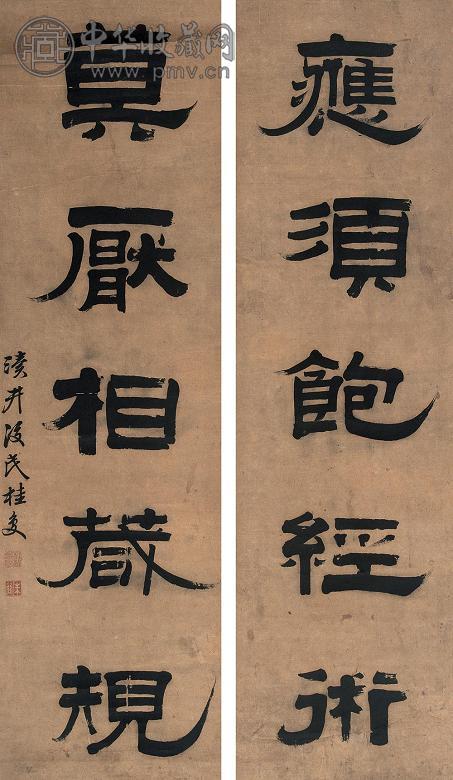 中华收藏网
www.pmv.cn
應須飽經術
莫厭相箴規
瀆井復民桂馥